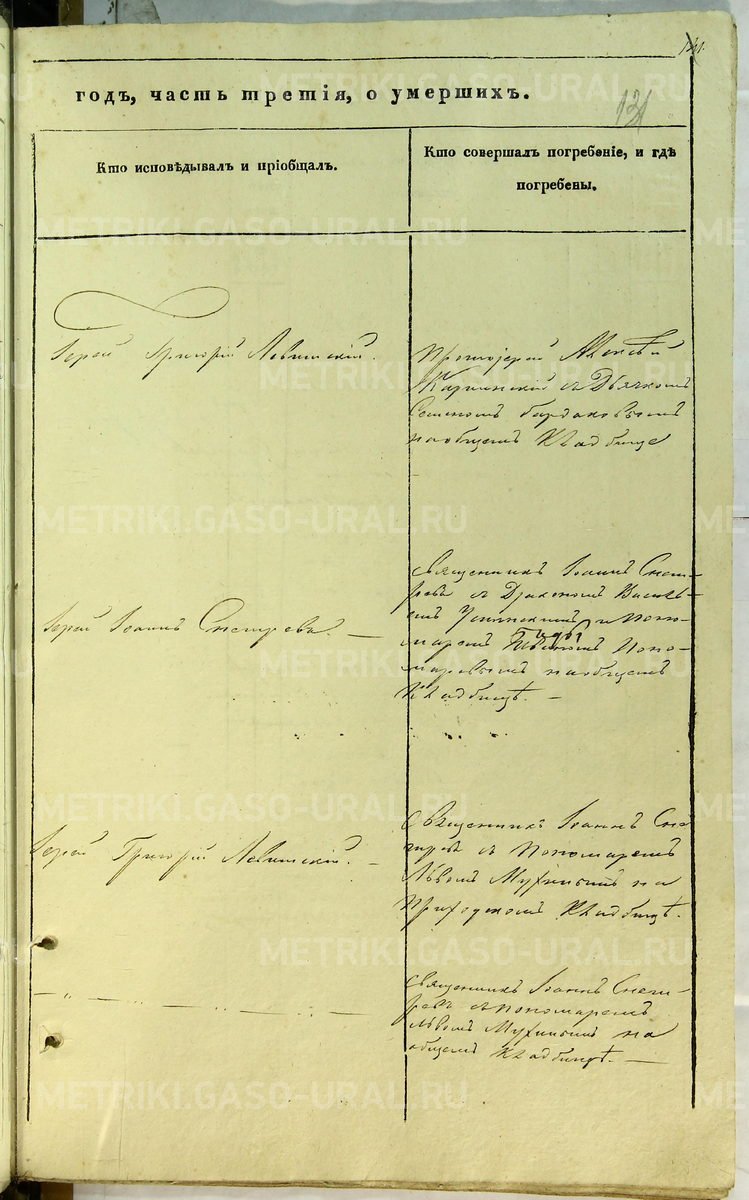 141.
121
годъ, часть третія, о умершихъ.
Кто исповѣдывалъ и пріобщалъ.
Кто совершалъ погребеніе, и гдѣ
погребены.
Іерей Григорій Левитскій.
Протоіерей Алексѣй
Карпинскій съ Дьячкомъ
Семеномъ бардаковымъ
наобщемъ Кладбище
Іерей Іоаннъ Снегиревъ. —
Священникъ Іоаннъ Снеги-
ревъ съ Діакономъ Василь-
емъ Успенскимъ и Поно-
маремъ Поно-
маревымъ наобщемъ
Кладбищѣ. —
Іерей Григорій Левитскій. —
Священникъ Іоаннъ Сне
гиревъ съ Пономаремъ
Львомъ Мухинымъ на
Приходскомъ Кладбищѣ.
— „ — — „ — — „ —
Священникъ Іоаннъ Снеги-
ревъ съ пономаремъ
Львомъ Мухинымъ на
общемъ Кладбищѣ. —
METRIKI.GASO-URAL.RU